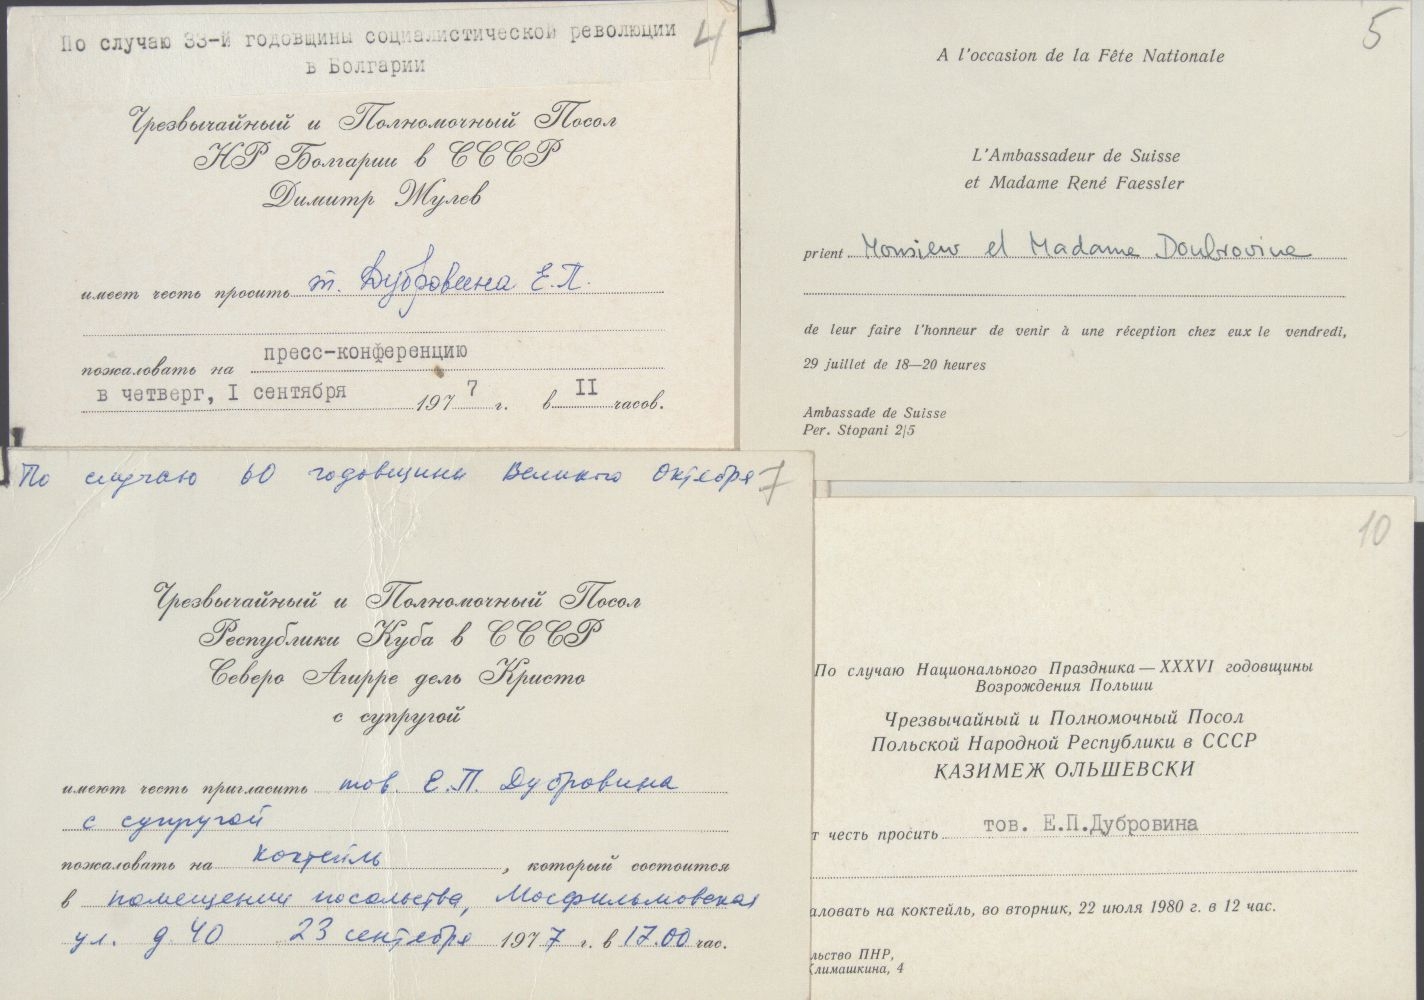 По случаю 33-й годовщины социалистической революции
в Болгарии
4
Чрезвычайный и Полномочный Посол
НР Болгарии в СССР
Димитр Жулев
имеет честь просить т. Дубровина Е.П.
пожаловать на пресс-конференцию
в четверг, I сентября 1977 г. в II часов.
5
A l'occasion de la Fête Nationale
L'Ambassadeur de Suisse
et Madame René Faessler
prient Monsieur et Madame Doubrovine
de leur faire l'honneur de venir à une réception chez eux le vendredi,
29 juillet de 18—20 heures
Ambassade de Suisse
Per. Stopani 2/5
По случаю 60 годовщины Великого Октября
7
Чрезвычайный и Полномочный Посол
Республики Куба в СССР
Северо Агирре дель Кристо
с супругой
имеют честь пригласить тов. Е.П. Дубровина
с супругой
пожаловать на коктейль, который состоится
в помещении посольства, Мосфильмовская
ул. д. 40 23 сентября 1977 г. в 17.00 час.
10
По случаю Национального Праздника — XXXVI годовщины
Возрождения Польши
Чрезвычайный и Полномочный Посол
Польской Народной Республики в СССР
КАЗИМЕЖ ОЛЬШЕВСКИ
т честь просить тов. Е.П.Дубровина
аловать на коктейль, во вторник, 22 июля 1980 г. в 12 час.
льство ПНР,
Климашкина, 4